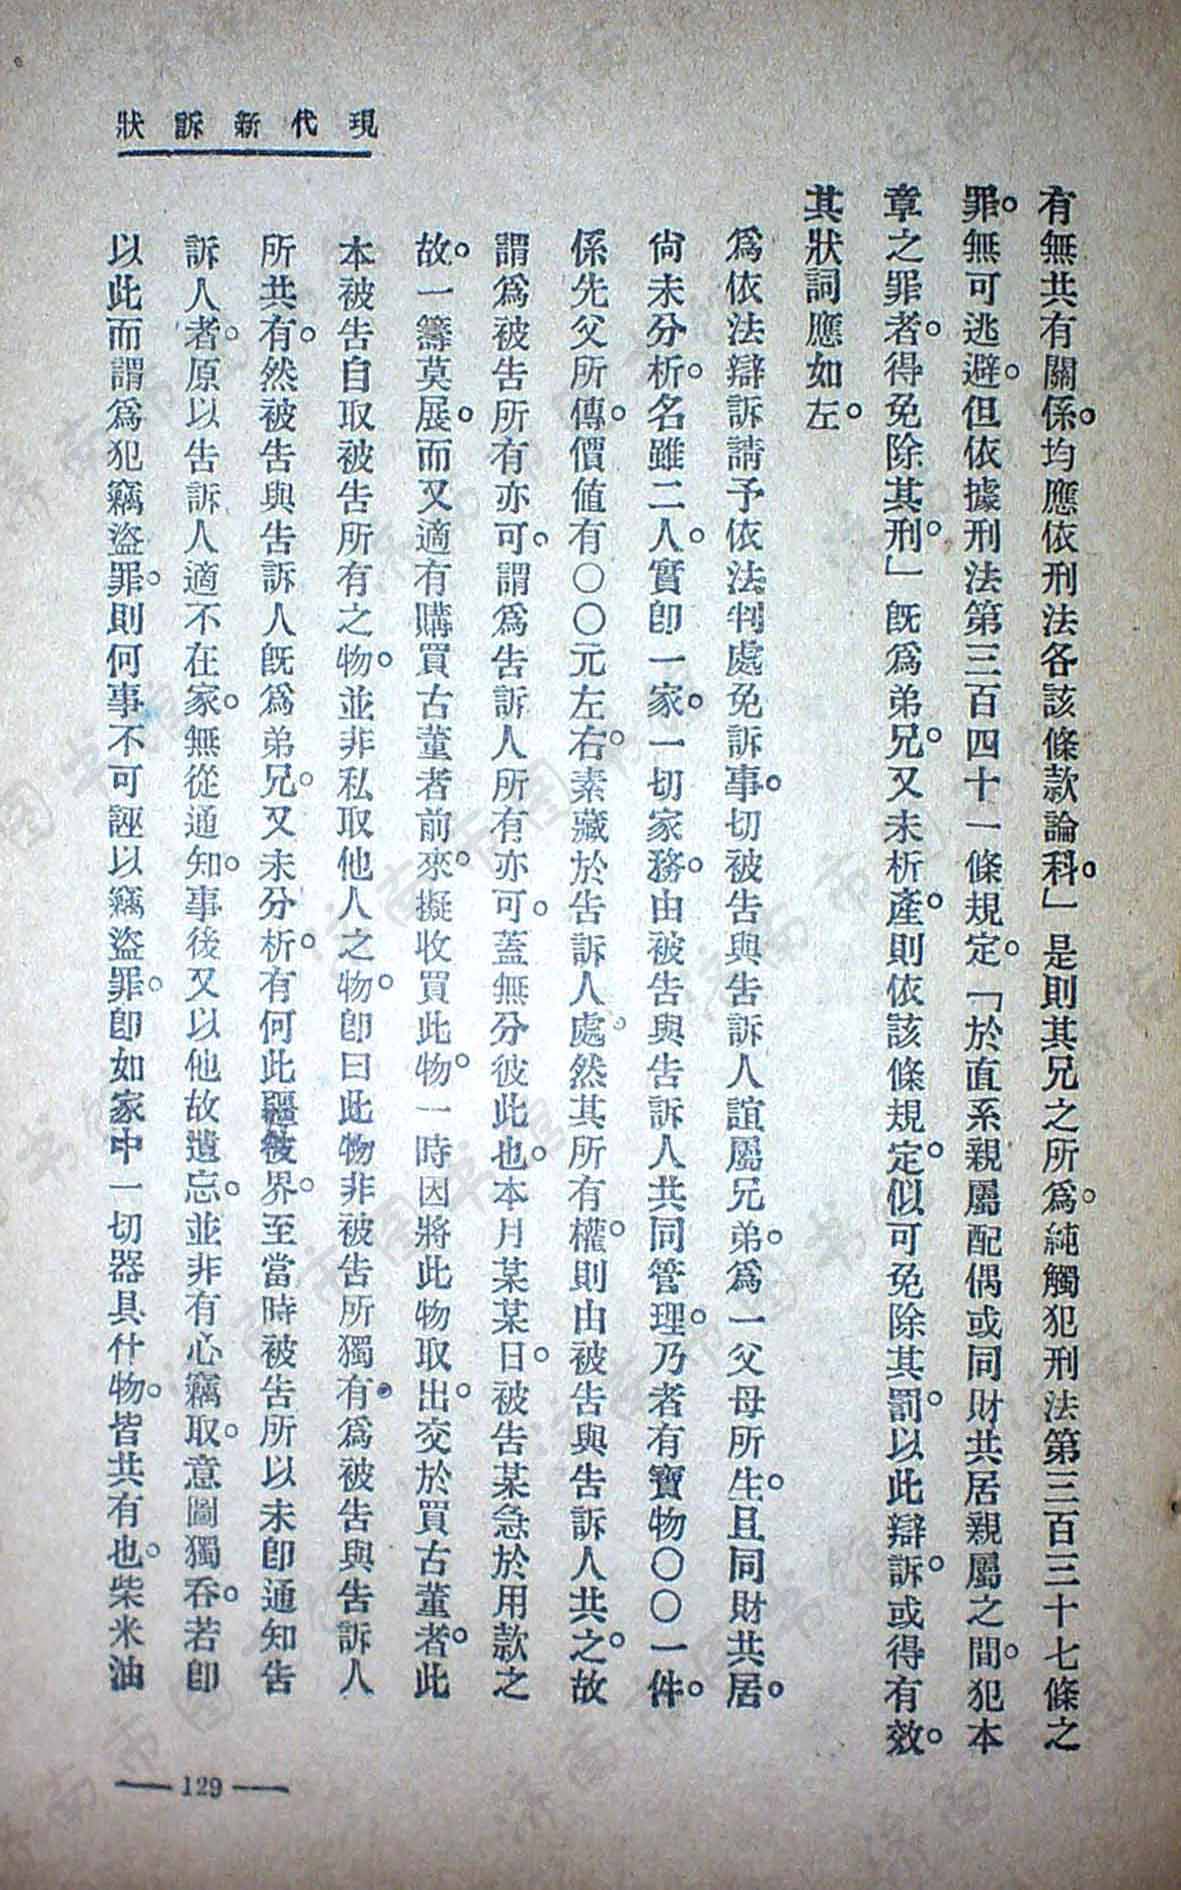 現代新訴狀
有無共有關係。均應依刑法各該條款論科。」是則其兄之所爲。純觸犯刑法第三百三十七條之
罪。無可逃避。但依據刑法第三百四十一條規定。「於直系親屬配偶或同財共居親屬之間。犯本
章之罪者。得免除其刑。」旣爲弟兄。又未析產。則依該條規定。似可免除其罰。以此辯訴。或得有效。
其狀詞應如左。
爲依法辯訴請予依法判處免訴事。切被告與告訴人誼屬兄弟。爲一父母所生。且同財共居。
尙未分析。名雖二人。實卽一家。一切家務。由被告與告訴人共同管理。乃者有寶物〇〇一件。
係先父所傳。價値有〇〇元左右。素藏於告訴人處。然其所有權。則由被告與告訴人共之。故
謂爲被告所有亦可。謂爲告訴人所有亦可。蓋無分彼此也。本月某某日。被告某急於用款之
故。一籌莫展。而又適有購買古董者前來。擬收買此物。一時因將此物取出。交於買古董者。此
本被告自取被告所有之物。並非私取他人之物。卽曰此物非被告所獨有。爲被告與告訴人
所共有。然被告與告訴人旣爲弟兄。又未分析。有何此疆彼界。至當時被告所以未卽通知告
訴人者。原以告訴人適不在家。無從通知。事後又以他故遺忘。並非有心竊取。意圖獨吞。若卽
以此而謂爲犯竊盜罪。則何事不可誣以竊盜罪。卽如家中一切器具什物。皆共有也。柴米油
129
济南市图书馆